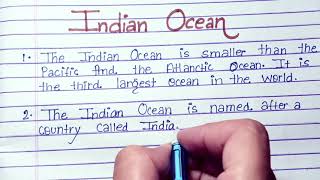 Indian Ocean
1. The Indian Ocean is smaller than the
Pacific And the Atlantic Ocean. It is
the third largest ocean in the world.
2. The Indian Ocean is named after a
country called India.